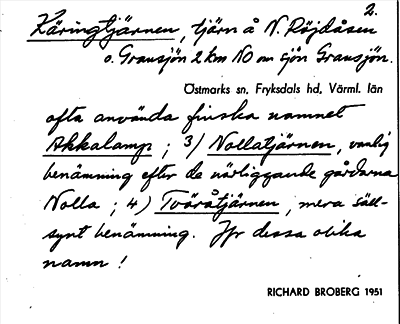 2.
Käringtjärnen, tjärn å N. Röjdåsen
o. Gransjön 2 km NO om sjön Gransjön.
Östmarks sn. Fryksdals hd, Värml. län
ofta använda finska namnet
Akkalamp; 3) Nollatjärnen, vanlig
benämning efter de närliggande gårdarna
Nolla; 4) Tväråtjärnen, mera säll-
synt benämning. Jfr dessa olika
namn!
RICHARD BROBERG 1951